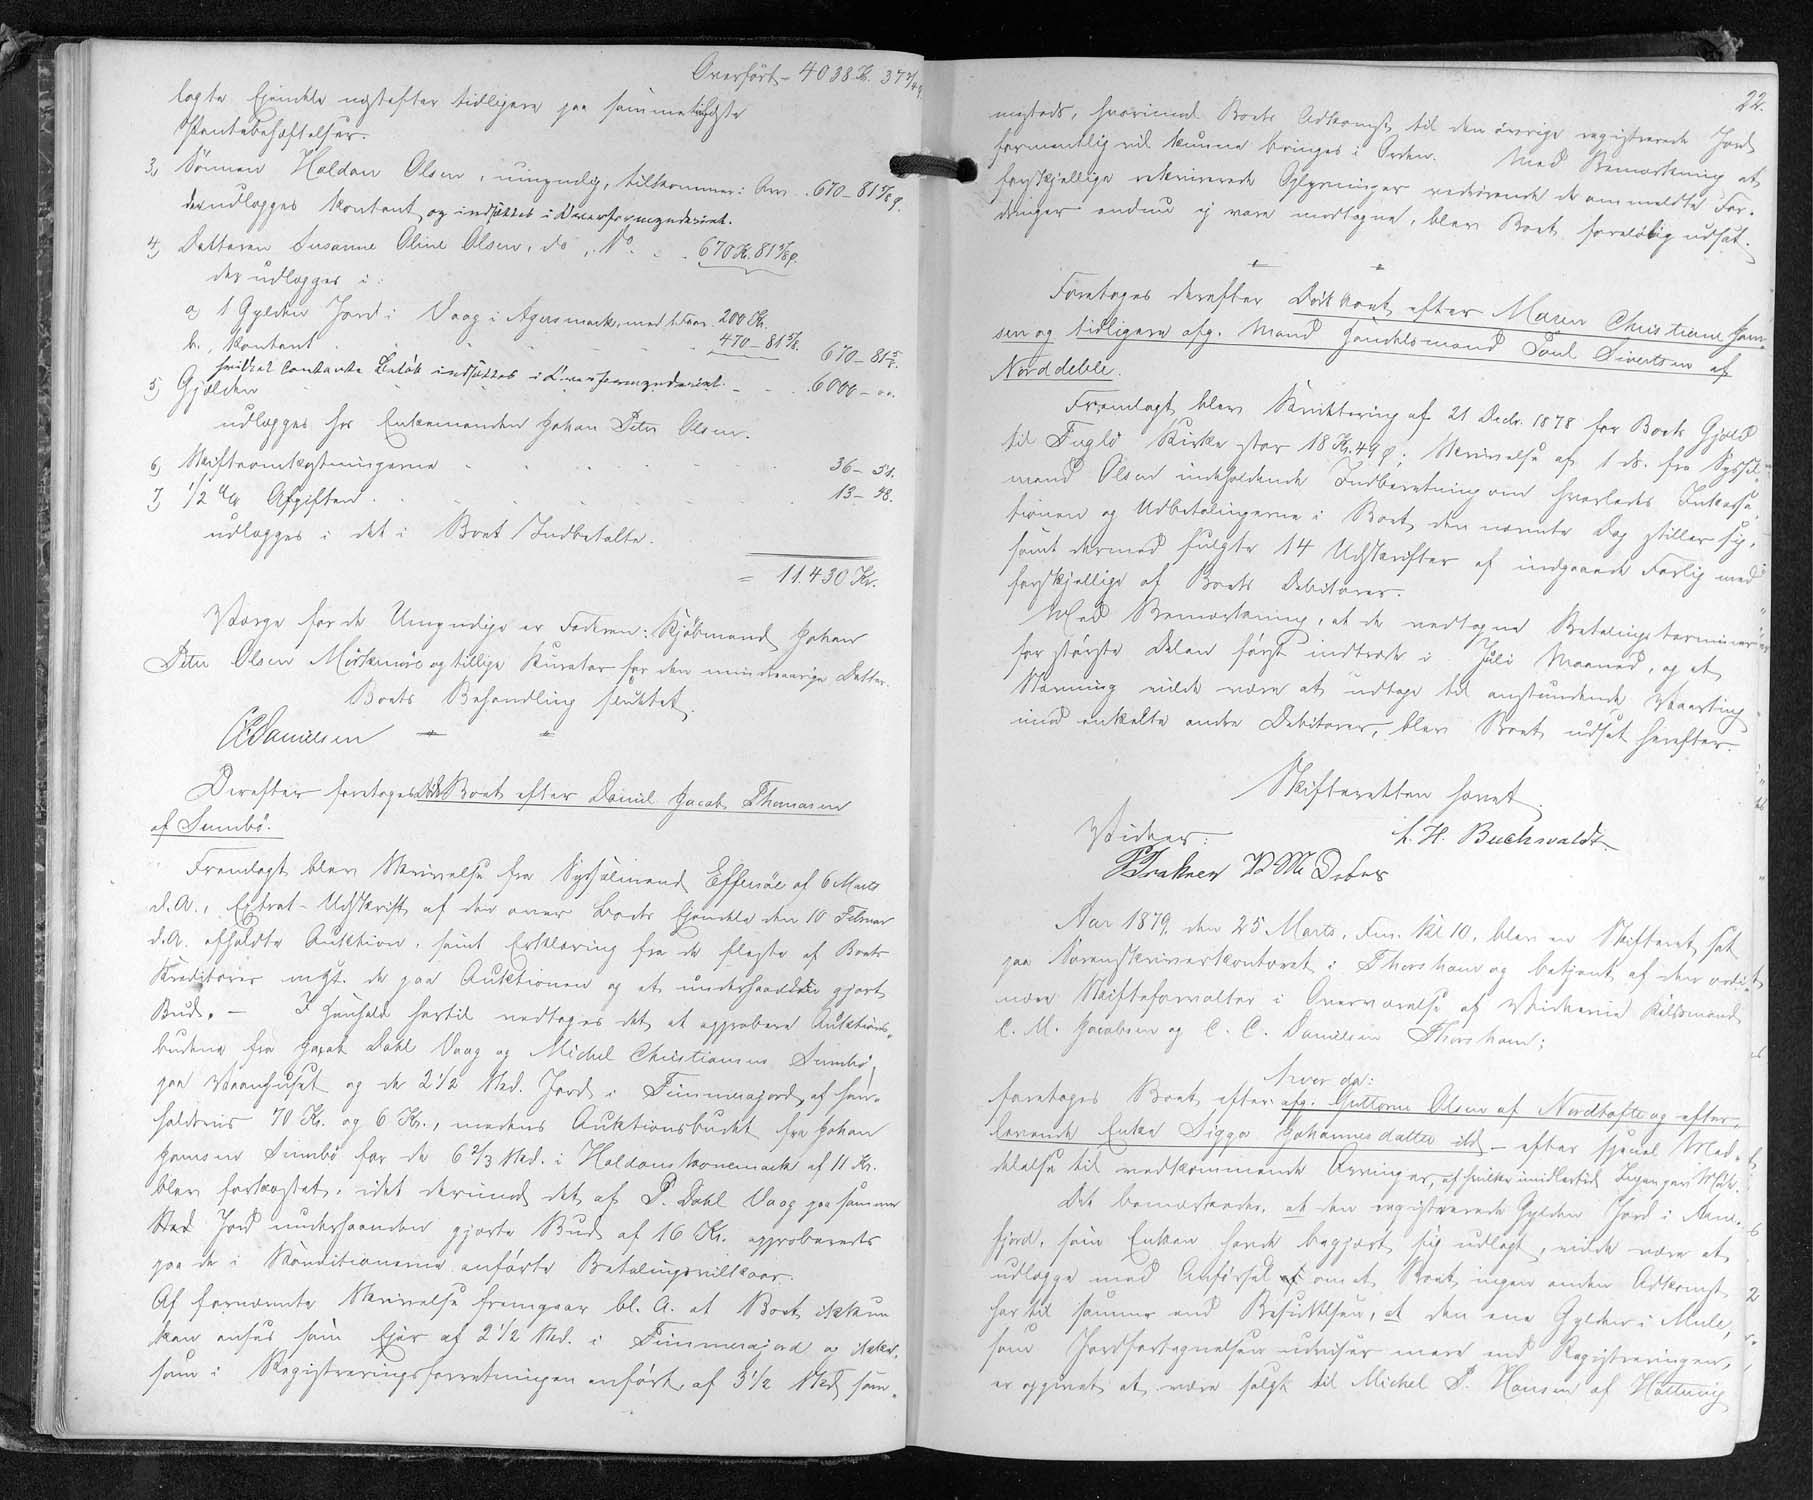 Overført - 4038 Kr. 37
lagte Ejendele næstefter tidligere paa samme
Pantebehæftelser.
3, Sønnen Haldan Olsen, umyndig, tilkommer: Arv 670 - 81 5/8 ø.
der udlægges kontant og indsættes i Overformynderiet.
4, Datteren Susanne Oline Olsen, do, do. 670 Kr. 81 5/8 ø.
der udlægges i:
a, 1 Gylden Jord i Vaag i Agersmark, med 200 Kr.
b., kontant 470 - 81 5/8. 670 - 81 5/8.
hvilket contante Beløb indsættes i Overformynderiet.
5, Gjælden 6000 - 00.
udlægges hos Enkemanden Johan Peter Olsen.
6, Skifteomkostningerne 36 - 51.
7, 1/2 % Afgiften 13 - 48.
udlægges i det i Boet Indbetalte.
= 11.430 Kr.
Værge for de Umyndige er Faderen: Kjøbmand Johan
Peter Olsen og tillige Kurator for den mindreaarige Datter.
Boets Behandling sluttet.
CDanielsen
Derefter foretoges Boet efter Daniel Jacob Thomasen
af Sumbø.
Fremlagt blev Skrivelse fra Sysselmand Effersøe af 6 Marts
d. A., Extrat-Udskrift af den over Boets Ejendele den 10 Februar
d. A. afholdte Auktion, samt Erklæring fra de fleste af Boets
Kreditorer angt. de paa Auktionen og et underhaanden gjort
Bud. - I Henhold hertil vedtoges det at approbere Auktions-
budene fra Jacob Dahl Vaag og Michel Christiansen Sumbø,
paa Vaanhuset og de 2 1/2 Skd. Jord i Timmerajord af hen-
holdsvis 70 Kr. og 6 Kr., medens Auktionsbudet fra Johan
Hansen Sumbø for de 6 2/3 Skd. i Haldanskonemark af 11 Kr.
blev forkastet, idet derimod det af P. Dahl Vaag paa samme
Skd Jord underhaanden gjorte Bud af 16 Kr. approberedes
paa de i Konditionerne anførte Betalingsvilkaar.
Af fornævnte Skrivelse fremgaar bl. A. at Boet ikkun
kan anses som Ejer af 2 1/2 Skd. i Timmerajord og ikke,
som i Registreringsforretningen anført, af 3 1/2 Skd. som-
22.
mesteds, hvorimod Boets Adkomst til den øvrige registrerede Jord
formentlig vil kunne bringes i Orden. Med Bemærkning at
forskjellige rekvirerede Oplysninger vedrørende de anmeldte For-
dringer endnu ej vare modtagne, blev Boet foreløbig udsat.
Foretoges derefter Dødsboet efter Maren Christiane Han-
sen og tidligere afg. Mand Handelsmand Poul Sivertsen af
Norddeble.
Fremlagt blev Kvittering af 21 Decbr. 1878 for Boets Gjæld
til Fuglø Kirke stor 18 Kr. 49 ø; Skrivelse af 1 ds. fra Syssel-
mand Olsen indeholdende Indberetning om hvorledes Inkassa-
tionen og Udbetalingerne i Boet den nævnte Dag stiller sig,
samt dermed fulgte 14 Udskrifter af indgaaede Forlig med
forskjellige af Boets Debitorer.
Med Bemærkning, at de vedtagne Betalingsterminer
for største Delen først indtræde i Juli Maaned, og at
Stævning vilde være at udtage til anstundende Vaarting
imod enkelte andre Debitorer, blev Boet udsat herefter.
Skifteretten hævet.
Vidner: L. H. Buchwaldt
V M Debes
Aar 1879, den 25 Marts, Fm. Kl. 10, blev en Skifteret sat
paa Sorenskriverkontoret i Thorshavn og betjent af den ordi-
nære Skifteforvalter i Overværelse af Vidnerne
C. M. Jacobsen og C. C. Danielsen Thorshavn;
hvor da:
foretoges Boet efter afg. Guttorm Olsen af Nordtofte og efter-
levende Enke Sigga Johannesdatter ibd. - efter speciel Med-
delelse til vedkommende Arvinger, af hvilke imidlertid Ingen gav Møde.
Det bemærkedes, at den registrerede Gylden Jord i Arne-
fjord, som Enken havde begjært sig udlagt, vilde være at
udlægge med Anførsel om at Boet ingen anden Adkomst
har til samme end Besiddelsen, at den ene Gylden i Mule,
som Jordfortegnelsen udviser mere end Registreringen,
er opgivet at være solgt til Michel P. Hansen af Hattervig